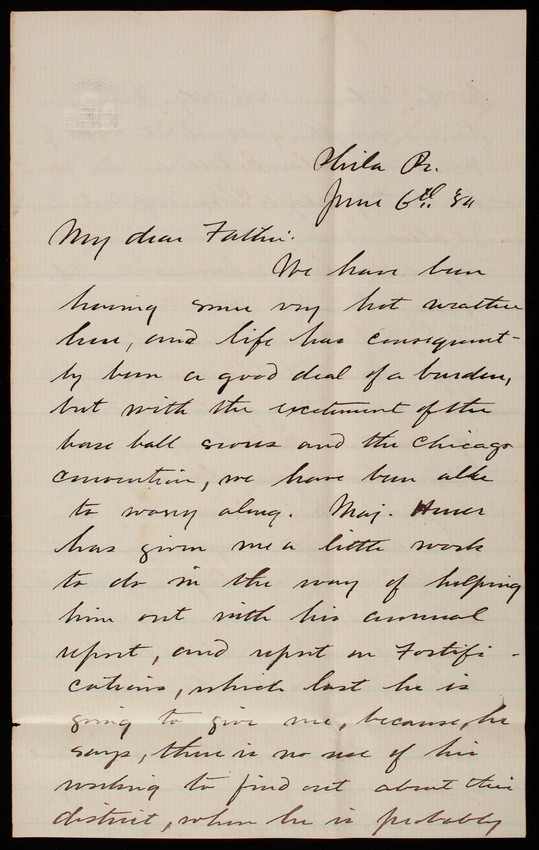 Phila Pa.
June 6th. '84
My dear Father:
We have been
having some very hot weather
here, and life has consequent-
ly been a good deal of a burden,
but with the excitement of the
base ball scores and the Chicago
Convention, we have been able
to worry along. Maj. Heuer
has given me a little work
to do in the way of helping
him out with his annual
report, and report on Fortifi-
cations, which last he is
going to give me, because, he
says, there is no use of his
working to find out about this
district, when he is probably